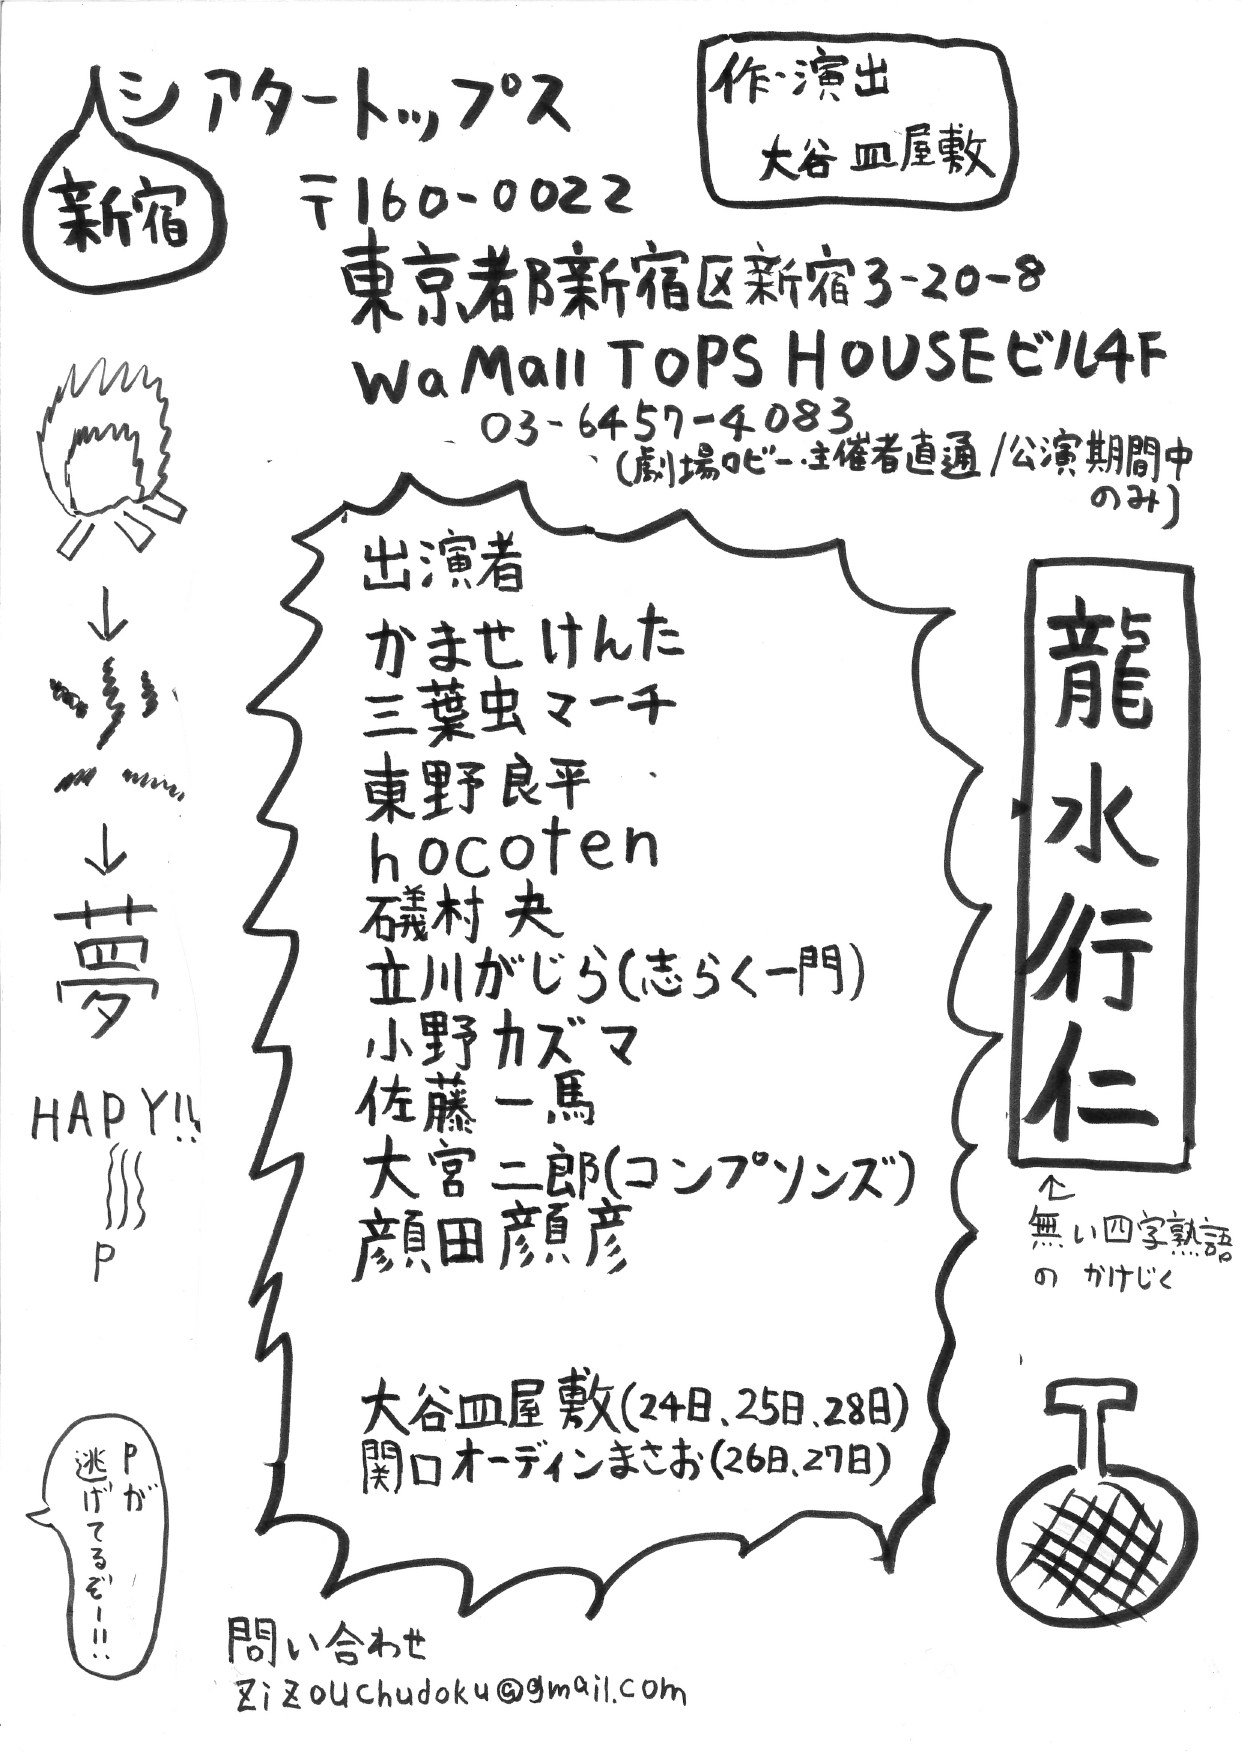 新宿シアタートップス
作・演出
大谷皿屋敷
〒160-0022
東京都新宿区新宿3-20-8
WaMall TOPS HOUSEビル4F
03-6457-4083
(劇場ロビー・主催者直通/公演期間中
のみ)
出演者
かませけんた
三葉虫マーチ
東野良平
hocoten
礒村 央
立川がじら(志らく一門)
小野カズマ
佐藤一馬
大宮二郎(コンプソンズ)
顔田顔彦
大谷皿屋敷(24日、25日、28日)
関口オーディンまさお(26日、27日)
龍水行仁
↑
無い四字熟語
のかけじく
↓
↓
夢
HAPY!!
P
Pが
逃げてるぞー!!
問い合わせ
zizouchudoku@gmail.com